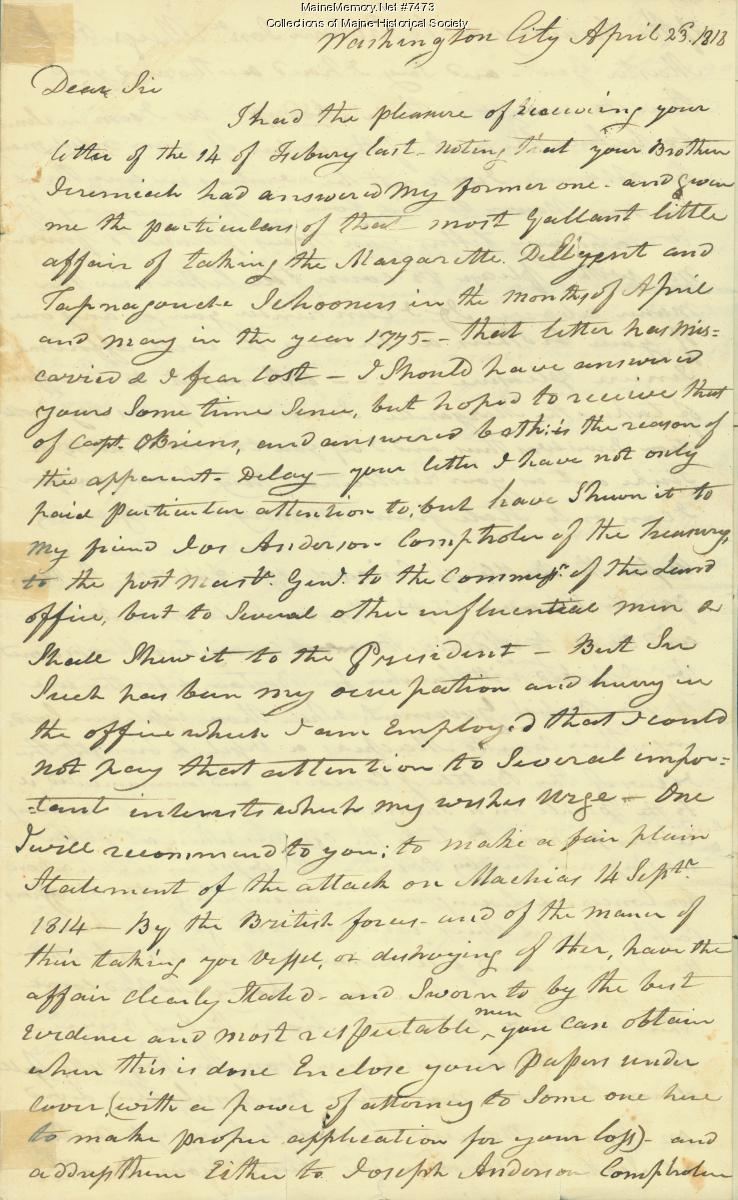 MaineMemory.Net #7473
Collections of Maine Historical Society
Washington City April 23. 1818
Dear Sir
I had the pleasure of receiving your
letter of the 14 of Febury last - noting that your Brother
Jeremiah had answered my former one - and given
me the particulars of that most Gallant little
affair of taking the Margarette. Dilligent and
Tapnagouche Schooners in the months of April
and may in the year 1775 - that letter has mis=
carried & I fear lost - I Should have answered
yours Some time Sence, but hoped to receive that
of Capt. OBriens, and answered both: is the reason of
the apparent - Delay - your letter I have not only
paid Particular attention to, but have Shewn it to
my friend Jos Anderson - Comptroler of the Treasury,
to the post Mastr. Genl. to the Commissr. of the Land
office, but to Several other influential men &
Shall Shew it to the President - But Sir
Such has been my occupation and hurry in
the office which I am Employed that I could
not pay that attention to Several impor=
=tant interests which my wishes Urge - One
I will recommend to you; to make a fair plain
Statement of the attack on Machias 14 Septr.
1814 - By the British forces - and of the maner of
their taking yor Vessel, or destroying of ther, have the
affair clearly Stated - and Sworn to by the best
Evidence and most respectable men you can obtain
when this is done Enclose your Papers under
cover, (with a power of attorney to Some one here
to make proper application for your loss) - and
address them Either to Joseph Anderson Comptroler